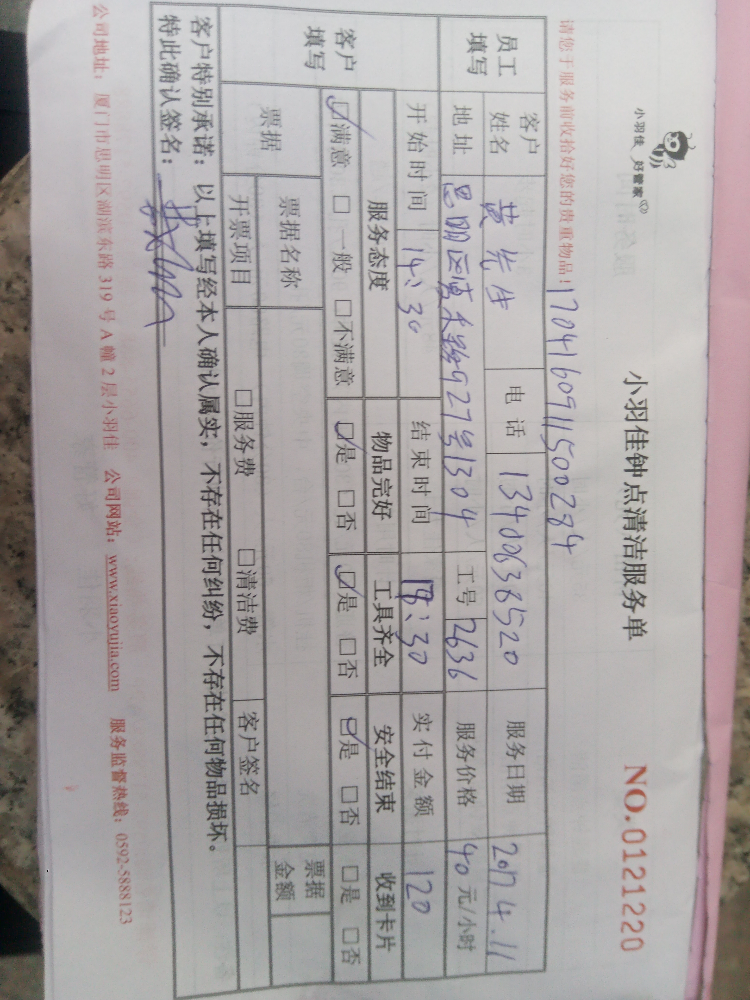 小羽佳 好管家
小羽佳钟点清洁服务单
NO.0121220
请您于服务前收拾好您的贵重物品!
1704160911500284
员工填写 客户姓名 黄先生 电话 13400638520 服务日期 2017.4.11
地址 工号 2636 服务价格 40 元/小时
客户填写 开始时间 14:30 结束时间 18:30 实付金额 120
服务态度 物品完好 工具齐全 安全结束 收到卡片
☑满意 □一般 □不满意 ☑是 □否 ☑是 □否 ☑是 □否 □是 □否
票据 票据名称 票据金额
开票项目 □服务费 □清洁费 客户签名
客户特别承诺:以上填写经本人确认属实,不存在任何纠纷,不存在任何物品损坏。
特此确认签名:
公司地址:厦门市思明区湖滨东路 319 号 A 幢 2 层小羽佳 公司网站:www.xiaoyujia.com 服务监督热线:0592-5888123